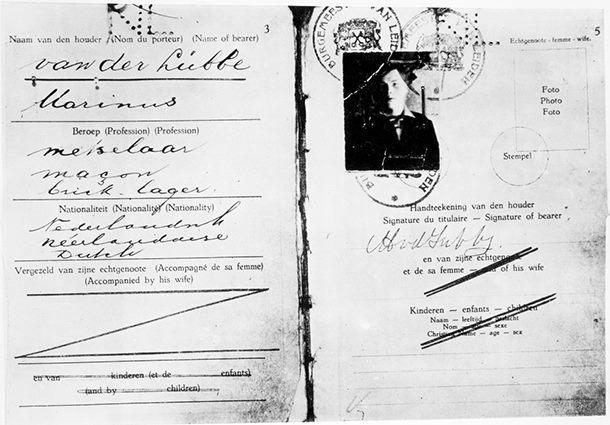 3
Naam van den houder (Nom du porteur) (Name of bearer)
van der Lubbe
Marinus
Beroep (Profession) (Profession)
metselaar
maçon
brick-lager.
Nationaliteit (Nationalité) (Nationality)
Nederlandsch
néerlandaise
Dutch
Vergezeld van zijne echtgenoote (Accompagné de sa femme)
(Accompanied by his wife)
en van kinderen (et de enfants)
(and by children)
5
BURGEMEESTER VAN LEIDEN
Echtgenoote - femme - wife.
Foto
Photo
Foto
Stempel
Handteekening van den houder
Signature du titulaire — Signature of bearer
MvdLubbe.
en van zijne echtgenoote
et de sa femme — and of his wife
Kinderen — enfants — children
Naam — leeftijd — geslacht
Nom — age — sexe
Christian Name — age — sex